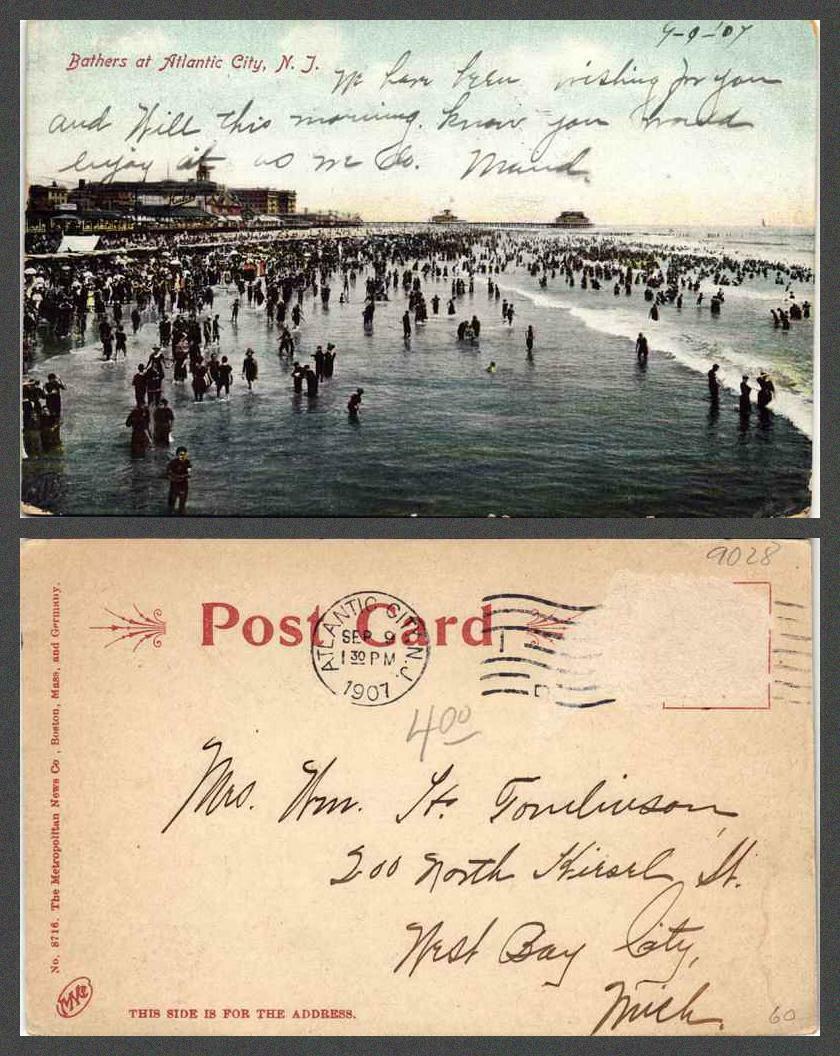 9-9-'07
Bathers at Atlantic City, N. J.
We have been wishing for you
and Will this morning. know you would
enjoy it as we do. Maud.
9028
Post Card
ATLANTIC CITY, N.J.
SEP 9
1 30 PM
1907
4 00
Mrs. Wm. H. Tomlinson,
200 North Kiesel St.
West Bay City,
Mich.
No. 8716. The Metropolitan News Co., Boston, Mass, and Germany.
THIS SIDE IS FOR THE ADDRESS.
60